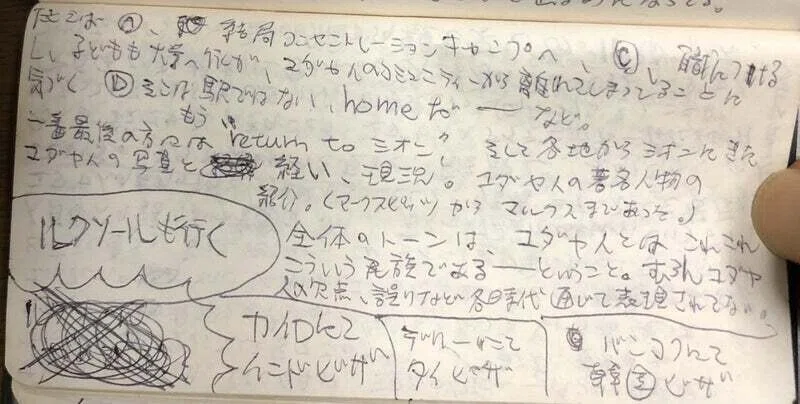 たとえば Ⓐ、結局コンセントレーションキャンプへ、Ⓒ、職につける
し、子どもも大学へ行くが、ユダヤ人のコミュニティーから離れてしまっていることに
気づく Ⓓ そこは駅ではない、home だ ── など。
一番最後の方にはもう "return to シオン"、そして各地からシオンにきた
ユダヤ人の写真と 経い、現況。ユダヤ人の著名人物の
紹介。(マークスピッツからマルクスまであった。)
全体のトーンは、ユダヤ人とはこれこれ
こういう民族である──ということ。むろんユダヤ
人の欠点、誤りなど各時代通じて表現されてない。
ルクソールも行く
カイロにて
インドビザ
デリーにて
タイビザ
バンコクにて
韓国ビザ